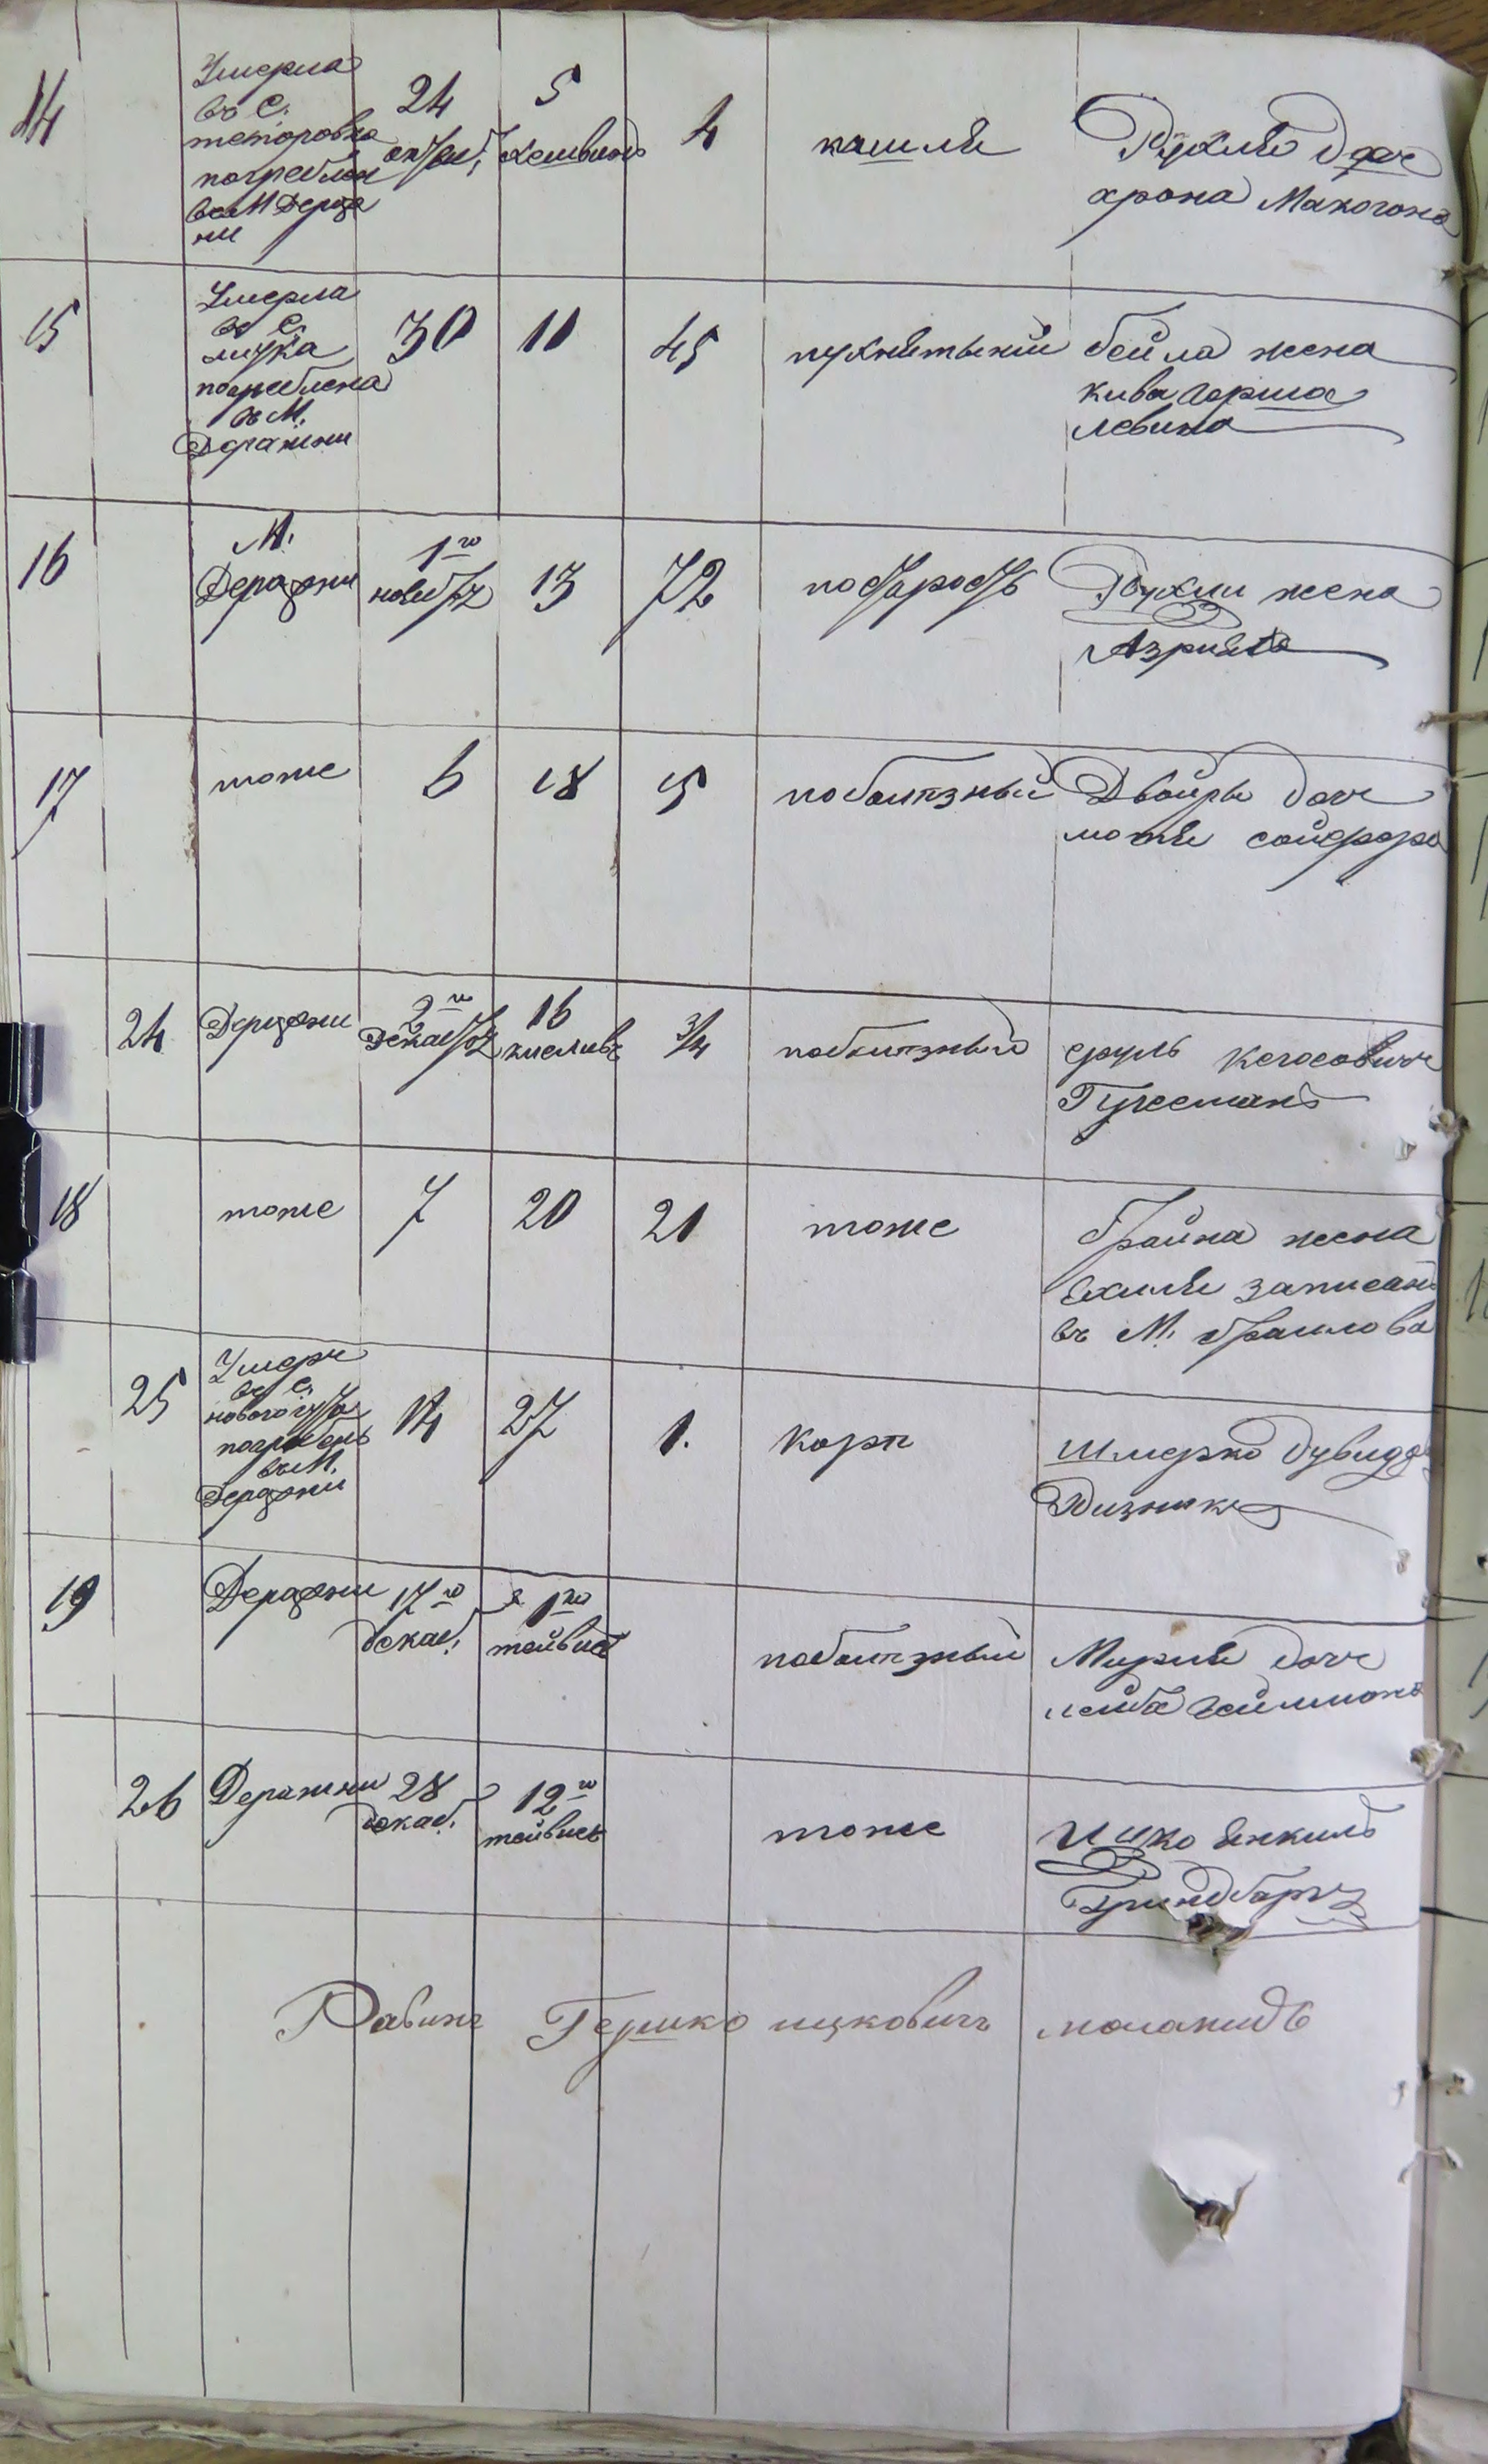 14
Умерла
въ С.
теторовка
погребена
въ М Деража
ни
24
октяб.
5
хешвинъ
4
кашля
Рухля доч
арона Макогона
15
Умерла
въ С.
лиука
погреблена
въ М.
Деражни
30
11
45
бейла жена
кива герша
левина
16
М.
Деражни
1го
ноября
13
72
постарость
Рухли жена
Азриля
17
тоже
6
18
15
поболѣзный
Двойра доч
мотя сойфера
24
Деражни
2го
Декабря
16
кисливъ
3/4
поболѣзный
сруль
Гусеманъ
18
тоже
7
20
21
тоже
брайна жена
ехиля записан
въ М. браилова
25
Умеръ
въ С.
погребенъ
въ М.
Деражни
14
27
1.
корѣ
Шмерко дувидов
Ризника
19
Деражни
17го
декаб.
1го
тейвис
поболѣзный
Мириля доч
лейба гейлмона
26
Деражни
28
декаб.
12го
тейвисъ
тоже
Ицко Янкиль
Гриндбаргъ
Равинъ Гершко ицковичъ